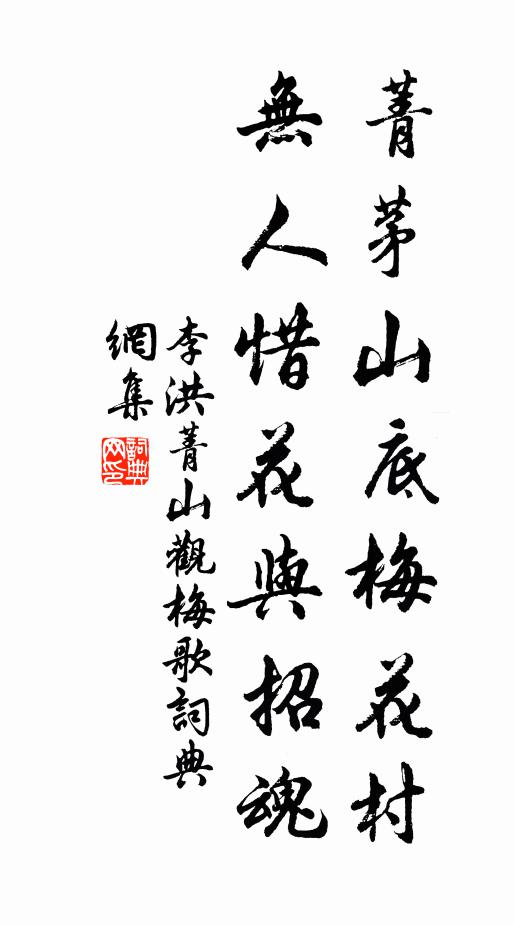 菁茅山底梅花村
無人惜花與招魂
李洪菁山觀梅歌詞典
網集
詞典网印